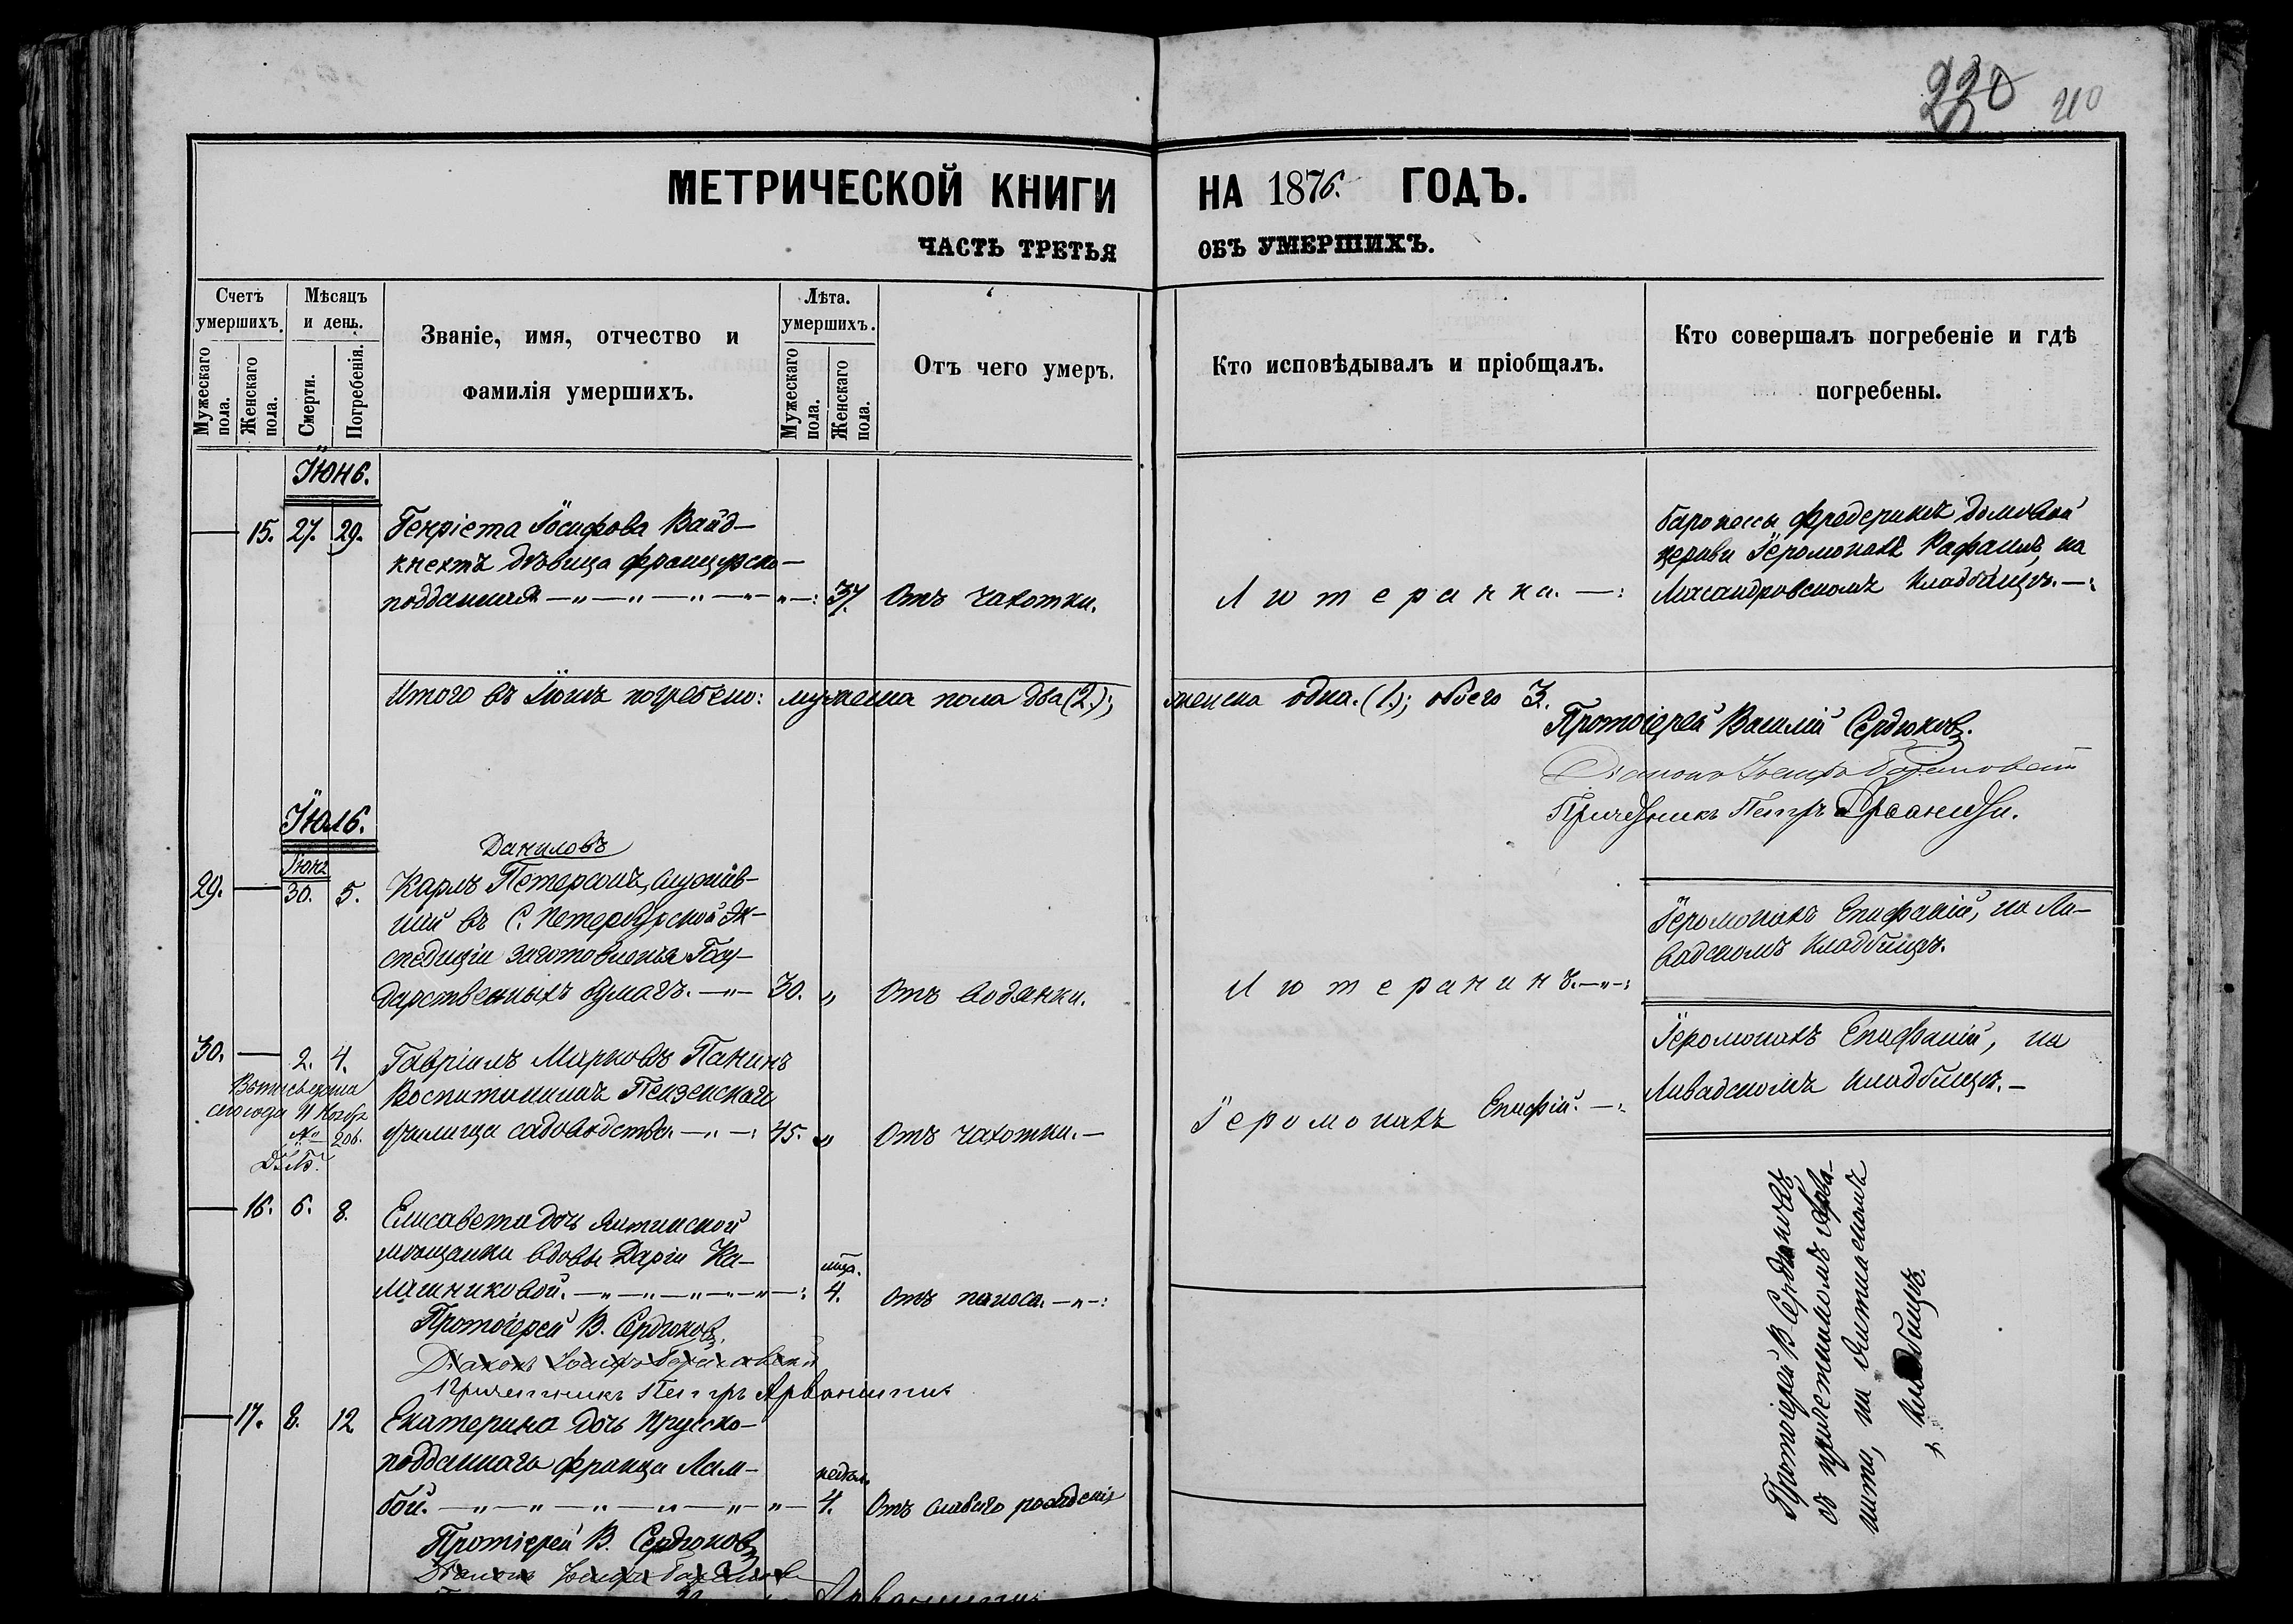 220 210
МЕТРИЧЕСКОЙ КНИГИ НА 1876. ГОДЪ.
ЧАСТЬ ТРЕТЬЯ ОБЪ УМЕРШИХЪ.
Счетъ умершихъ.
Мужескаго пола.
Женскаго пола.
Мѣсяцъ и день.
Смерти.
Погребенія.
Званіе, имя, отчество и
фамилія умершихъ.
Лѣта. умершихъ.
Мужескаго пола.
Женскаго пола.
Отъ чего умеръ.
Кто исповѣдывалъ и пріобщалъ.
Кто совершалъ погребеніе и гдѣ
погребены.
Іюнь.
— 15. 27. 29.
Генріета Іосифова Вайд-
кнехтъ дѣвица французско-
подданная — „ — „ — „ — „ —: 37. Отъ чахотки.
Лютеранка. —:
баронессы Фредериксъ домовой
церкви Іеромонахъ Рафаилъ, на
Масандровскомъ кладбищѣ. —:
Итого въ Іюнѣ погребено: мужеска пола два (2.);
женска одна. (1.); обоего 3.
Протоіерей Василій Сердюковъ.
Діаконъ Іосифъ
Причетникъ Петръ Арванити.
Іюль.
Даниловъ
Іюня
29. — 30. 5.
Карлъ Петерсонъ, служив-
шій въ С. Петербургской Эк-
спедиціи заготовленія Госу-
дарственныхъ бумагъ. —„— 30. „ Отъ водянки.
Лютеранинъ. —„—:
Іеромонахъ Епифаній, на Ли-
вадскомъ кладбищѣ.
30. — 2. 4.
Гавріилъ Марковъ Панинъ
Воспитанникъ Пензенскаго
училища садоводства. —„—: 45. „ Отъ чахотки. —
сего года 11 Ноября
№ 206.
Іеромонахъ Епифій. —:
Іеромонахъ Епифаній, на
Ливадскомъ кладбищѣ. —
— 16. 6. 8.
Елисавета дочь Ялтинской
мѣщанки вдовы Даріи Ка-
лашниковой. —„—„—„—„—: мѣся. 4. Отъ поноса. —„—:
Протоіерей В. Сердюковъ.
Діаконъ Іосифъ
Причетникъ Петръ Арванити
— 17. 8. 12
Екатерина дочь Прусско-
подданнаго Франца Лам-
бой. —„—„—„—„—„— недѣль 4. Отъ слабаго рожденія
Протіерей В. Сердюковъ
Діаконъ Іосифъ
Арванити
Протоіерей В Сердюковъ,
съ причетникомъ Арва-
нити, на Ялтинскомъ
кладбищѣ.